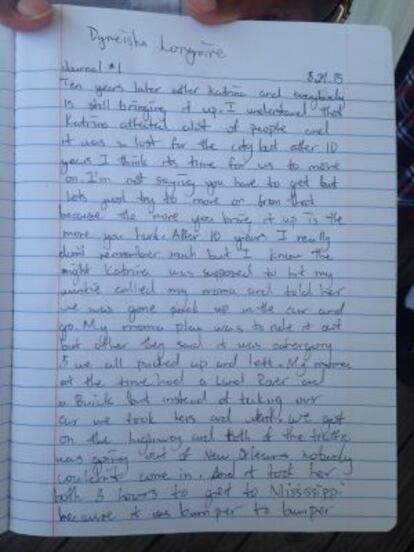 Dyneisha Longmire
Journal #1 8.29.15
Ten years later after Katrina and everybody
is still bringing it up. I understand that
Katrina affected alot of people and
it was a lost for the city but after 10
years I think its time for us to move
on. I'm not saying you have to get but
lets just try to move on from that
because the more you bring it up is the
more you hurt. After 10 years I really
don't remember much but I know the
night Katrina was supposed to hit my
auntie called my moma and told her
we was gone pack up in the car and
go. My moma plan was to ride it out
but after they said it was catergory
5 we all packed up and left. My moma
at the time had a Land Rover and
a Buick but instead of taking our
car we took hers and went. We got
on the highway and both of the traffic
was going out of New Orleans nobody
couldn't come in. And it took her
both 3 hours to get to Mississippi
because it was bumper to bumper